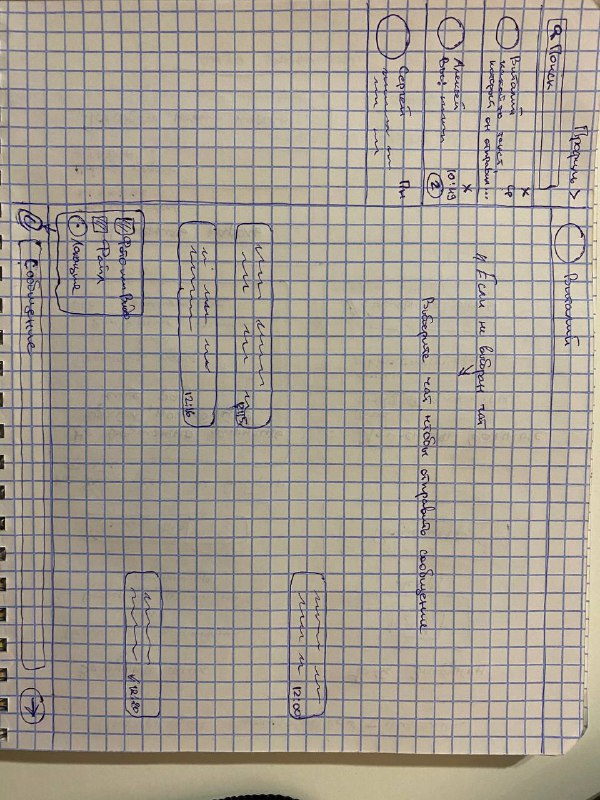 Профиль >
Поиск
Виталий
какой-то текст
который он отправил...
ср
Алексей
Вы:
10:49
2
Сергей
Пн
Виталий
// Если не выбран чат
Выберите чат чтобы отправить сообщение
12:00
12:15
12:16
12:20
Фото или Видео
Файл
Локация
Сообщение